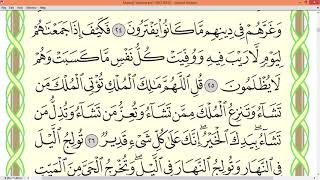 وَغَرَّهُمْ فِي دِينِهِم مَّا كَانُوا۟ يَفْتَرُونَ ٢٤ فَكَيْفَ إِذَا جَمَعْنَٰهُمْ
لِيَوْمٍ لَّا رَيْبَ فِيهِ وَوُفِّيَتْ كُلُّ نَفْسٍ مَّا كَسَبَتْ وَهُمْ
لَا يُظْلَمُونَ ٢٥ قُلِ ٱللَّهُمَّ مَٰلِكَ ٱلْمُلْكِ تُؤْتِي ٱلْمُلْكَ مَن
تَشَآءُ وَتَنزِعُ ٱلْمُلْكَ مِمَّن تَشَآءُ وَتُعِزُّ مَن تَشَآءُ وَتُذِلُّ مَن
تَشَآءُ ۖ بِيَدِكَ ٱلْخَيْرُ ۖ إِنَّكَ عَلَىٰ كُلِّ شَيْءٍ قَدِيرٌ ٢٦ تُولِجُ ٱلَّيْلَ
فِي ٱلنَّهَارِ وَتُولِجُ ٱلنَّهَارَ فِي ٱلَّيْلِ ۖ وَتُخْرِجُ ٱلْحَيَّ مِنَ ٱلْمَيِّتِ